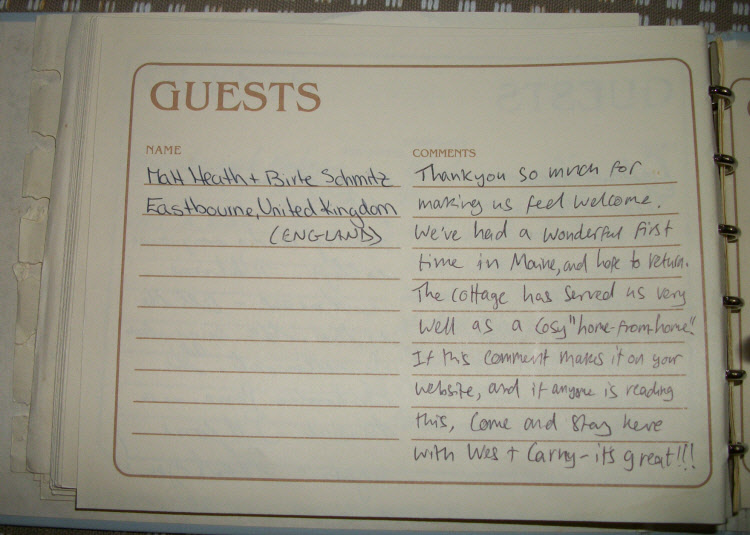 GUESTS
NAME
Matt Heath + Birte Schmitz
Eastbourne, United Kingdom
(ENGLAND)
COMMENTS
Thankyou so much for
making us feel welcome.
We've had a wonderful first
time in Maine, and hope to return.
The cottage has served us very
well as a cosy "home-from-home".
If this comment makes it on your
website, and if anyone is reading
this, come and stay here
with Wes + Carny - its great!!!